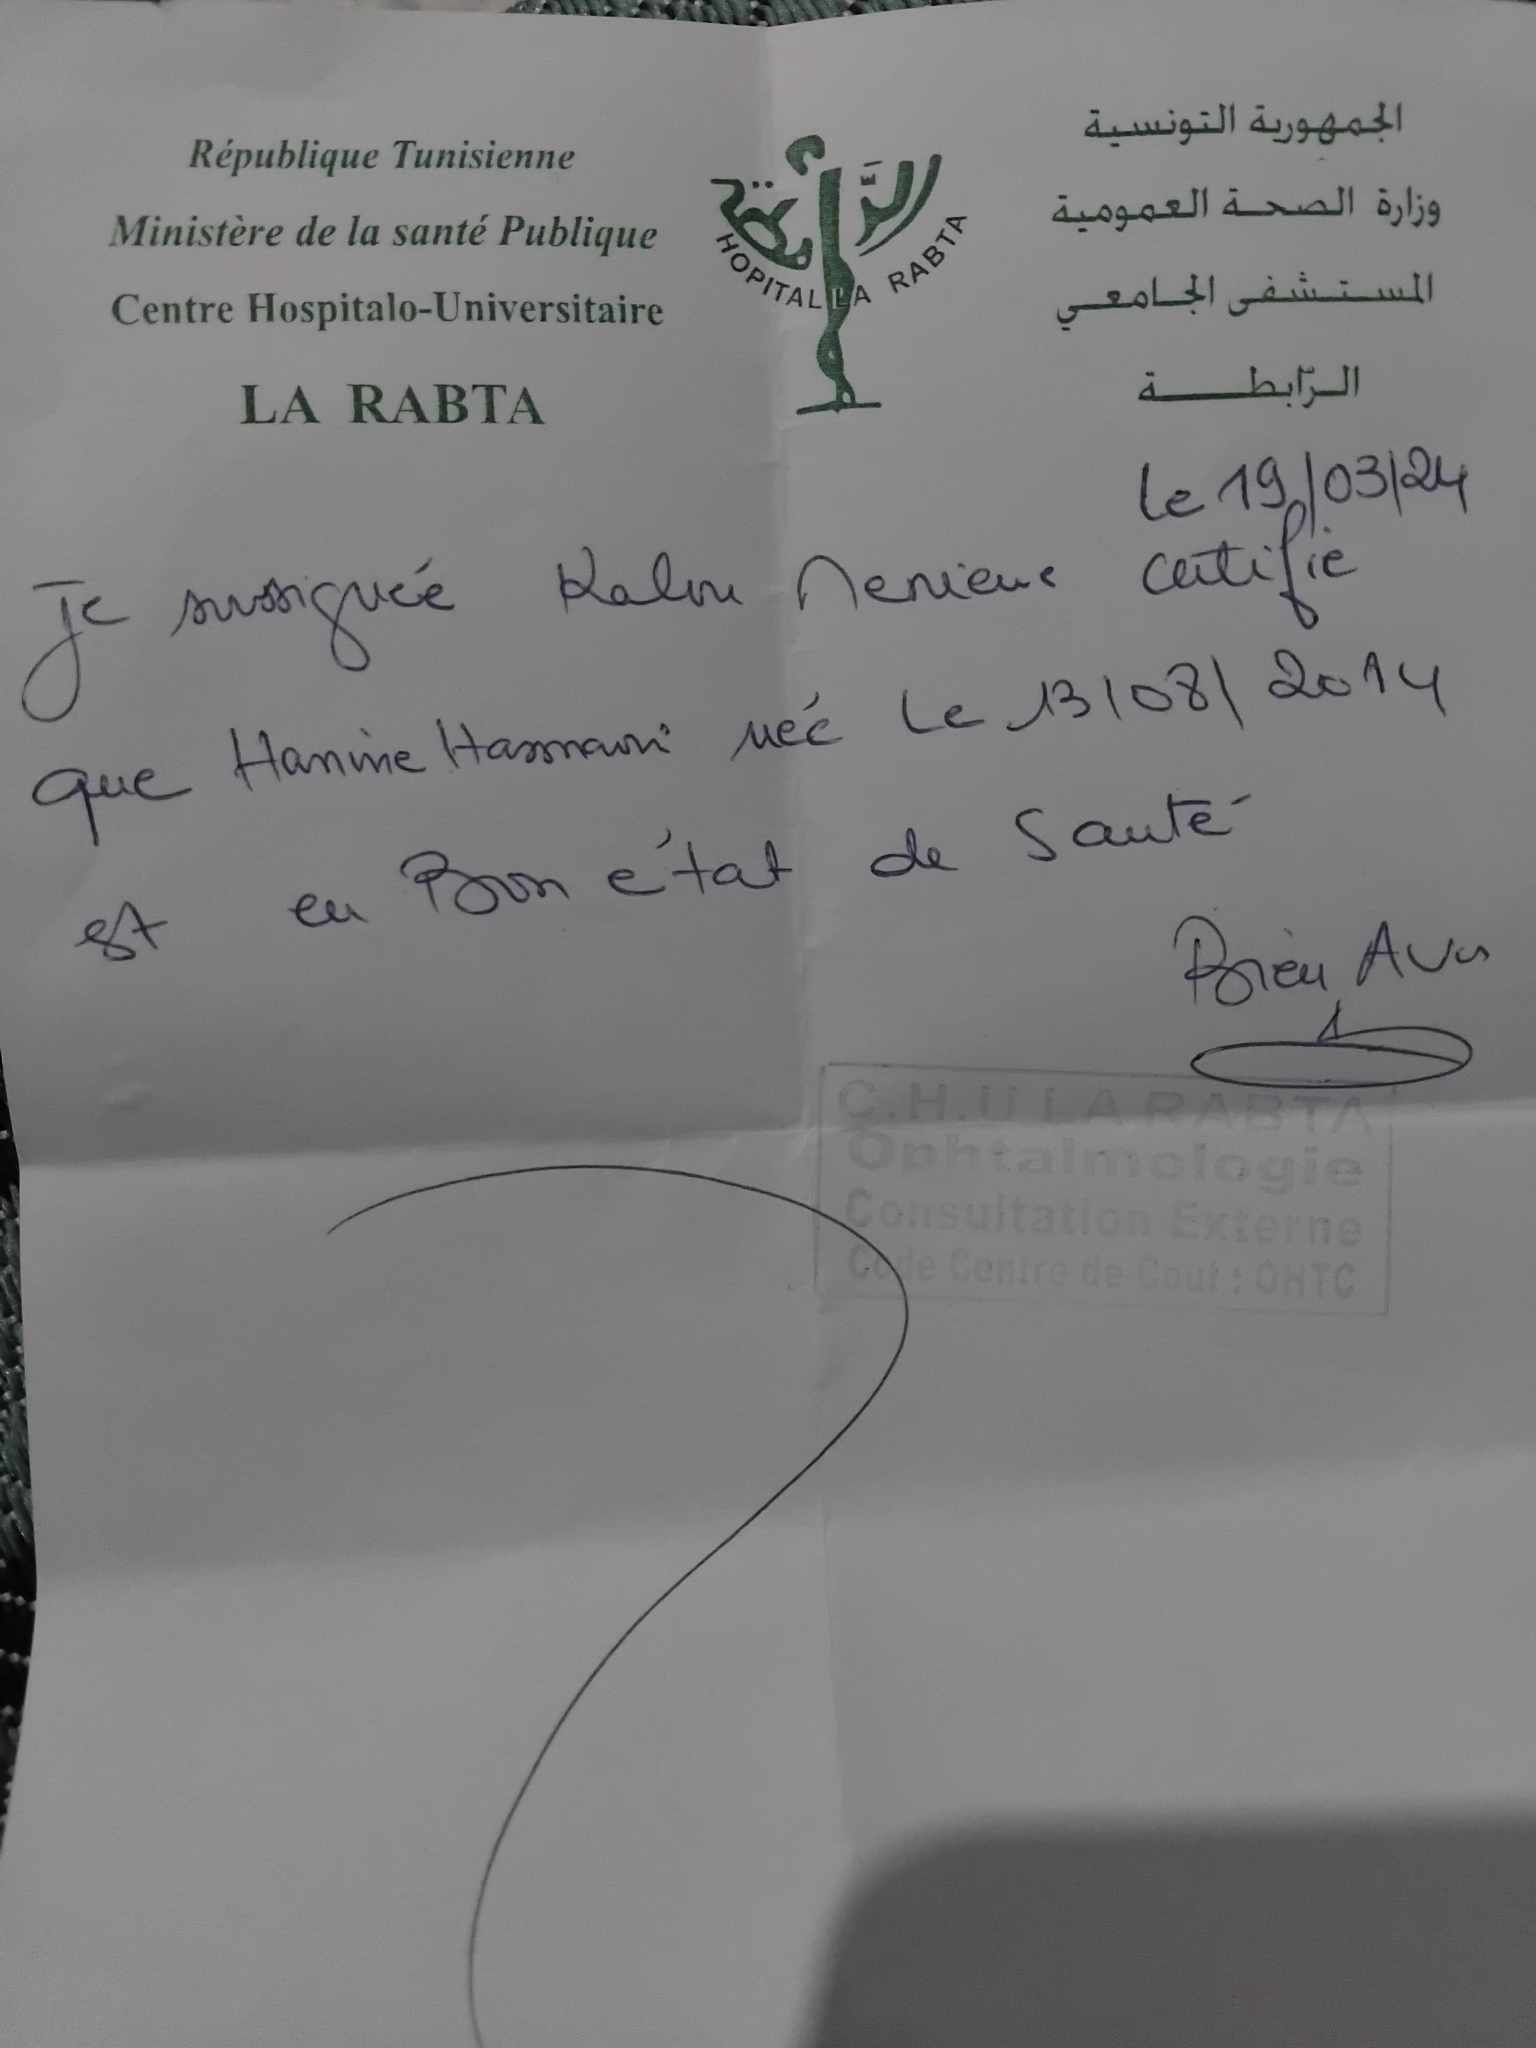 République Tunisienne
Ministère de la santé Publique
Centre Hospitalo-Universitaire
LA RABTA
الرابطة
HOPITAL LA RABTA
الجمهورية التونسية
وزارة الصحة العمومية
المستشفى الجامعي
الرّابطة
le 19/03/24
Je sussignée certifie
que Hanine née le 13/08/2014
est en Bon état de Santé
Bien
C.H.U LA RABTA
Ophtalmologie
Consultation Externe
Code Centre de Cout : OHTC